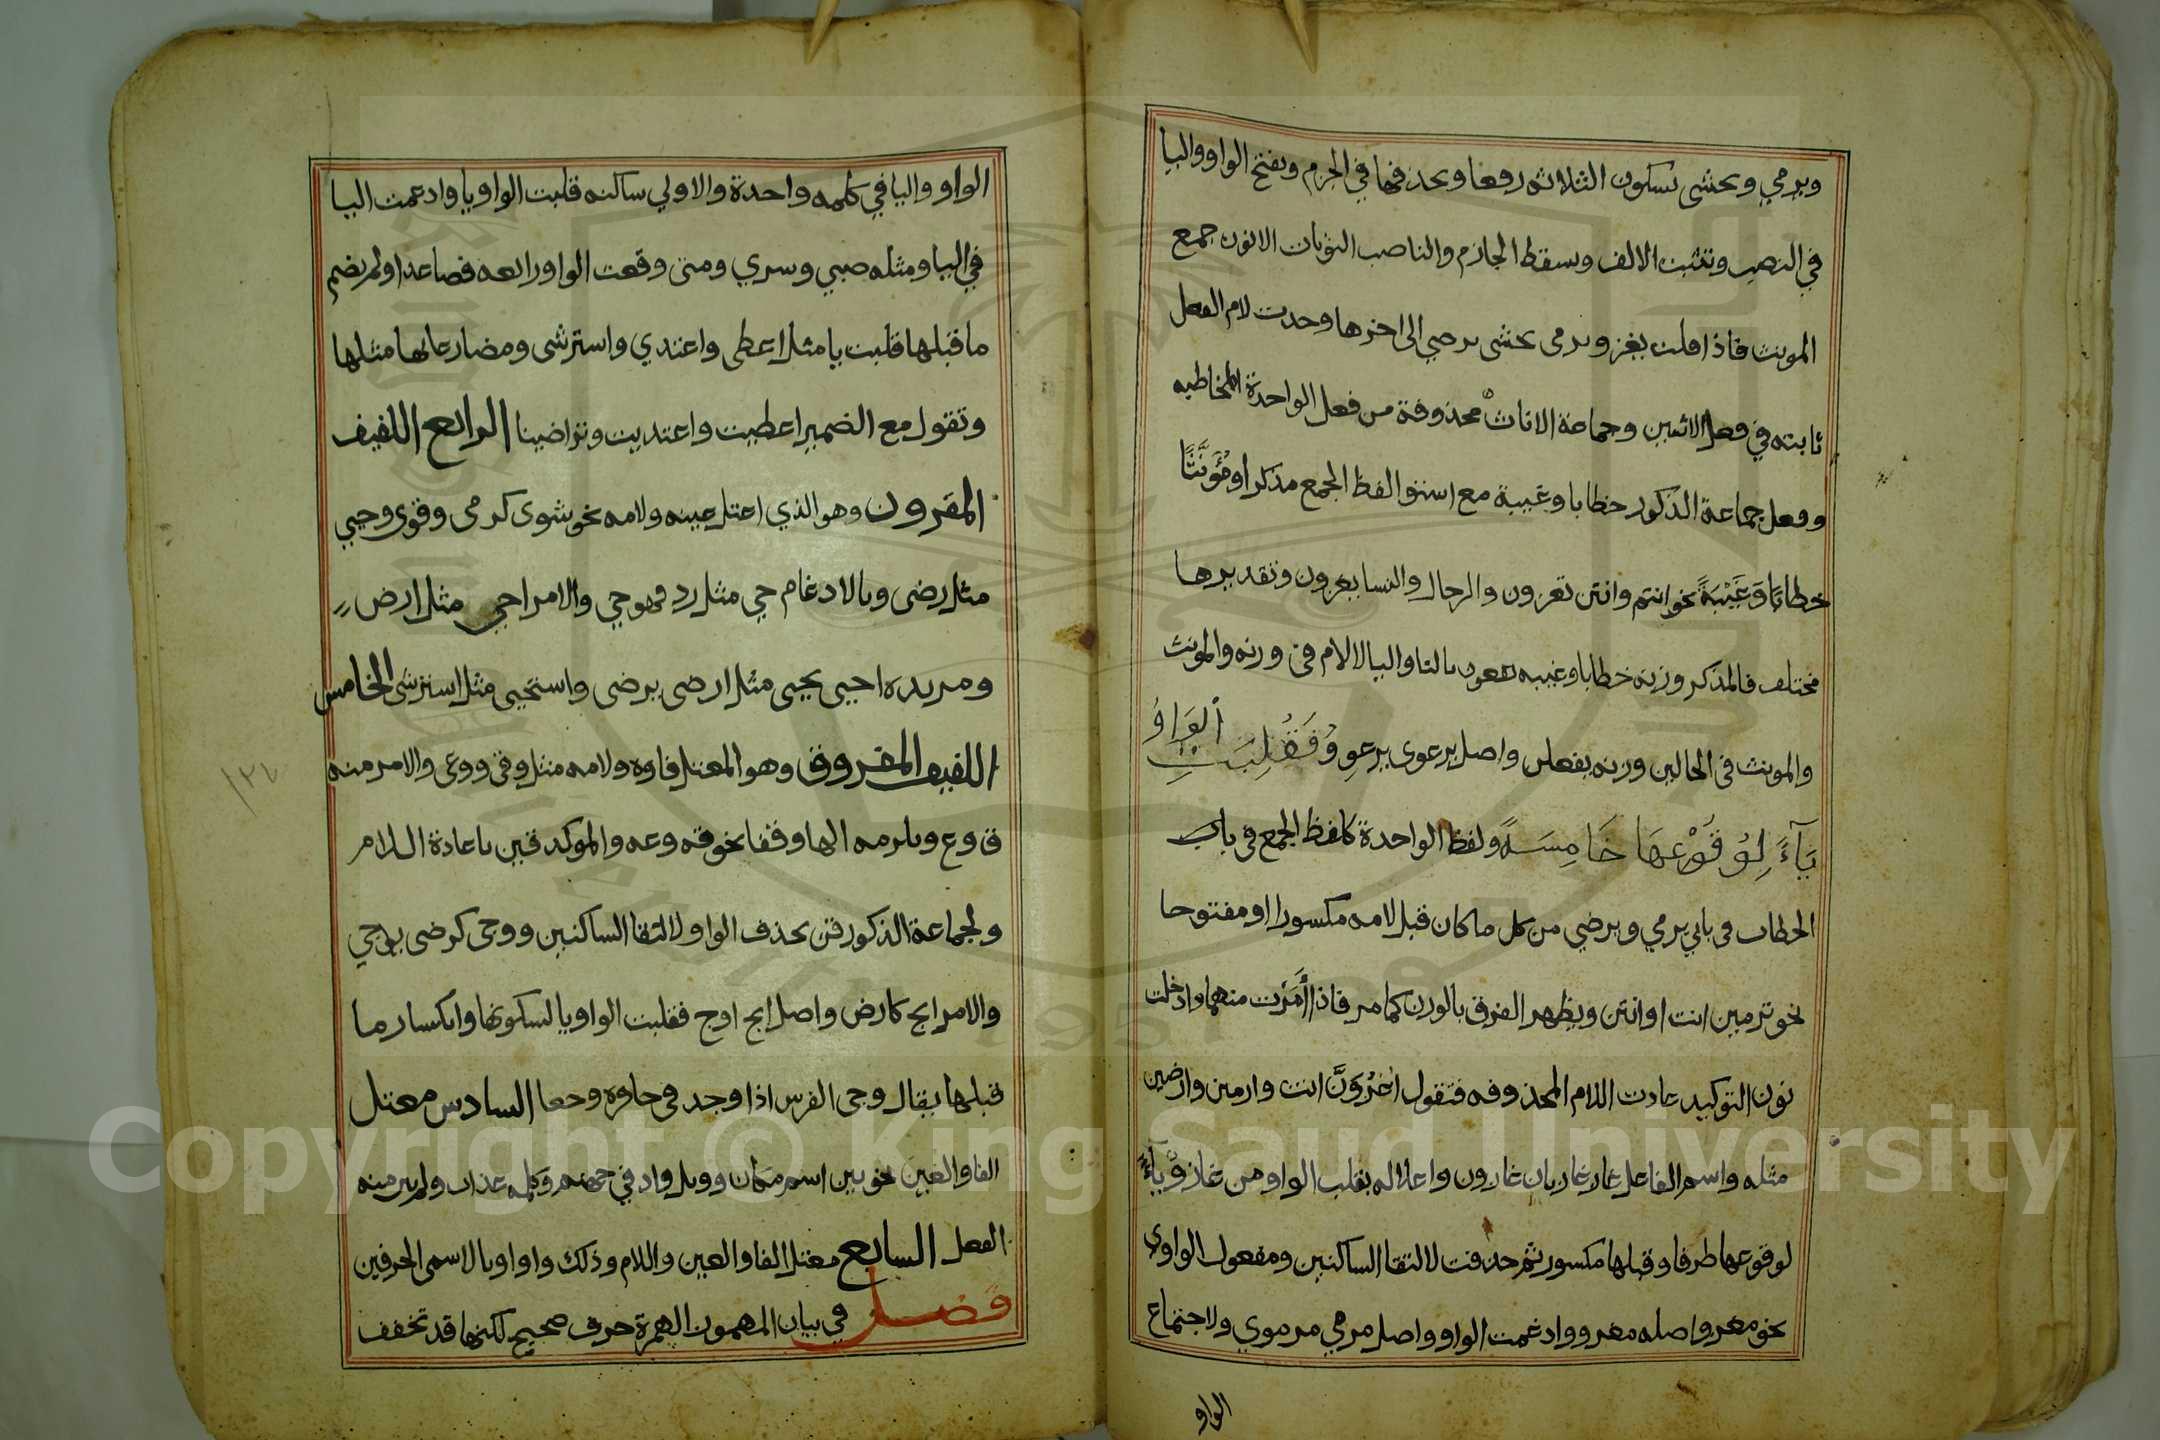 ويرمي ويخشى بسكون الثلاثه رفعا وبحذفها في الجزم وبفتح الواو واليا
في النصب وتثبت الالف ويسقط الجازم والناصب النونات الا نون جمع
المونث فاذا قلت يغزو يرمى يخشى يرضي الى اخرها وحدت لام الفعل
ثابته في فعل الاثنين وجماعة الاناث محذوفة من فعل الواحدة المخاطبه
وفعل جماعة الذكور خطابا وغيبة مع استوا لفظ الجمع مذكرا ومُؤَنَّثًا
خطابًا وَغَيْبَةً نحو انتم وانتن تغزون والرجال والنسا يغزون وتقديرها
مختلف فالمذكر وزنه خطابا وغيبه تفعون بالتا واليا لا لام في وزنه والمونث
والمونث في الحالين وزنه يفعلن واصل يرعوى يرعوو فَقُلِبَتِ الْوَاوُ
يَآءً لِوُقُوْعِهَا خَامِسَةً ولفظ الواحدة كلفظ الجمع في باب
الخطاب في بابي يرمي ويرضي من كل ما كان قبل لامه مكسورا او مفتوحا
نحو ترمين انت او انتن ويظهر الفرق بالوزن كما مر فاذا أَمَرْت منهما وادخلت
نون التوكيد عادت اللام المحذوفه فتقول اغْزُوَنَّ انت وارمين وارضين
مثله واسم الفاعل غاز غازيان غازون واعلاله بقلب الواو من غازوٌ يآءً
لوقوعها طرفا وقبلها مكسور ثم حذفت لالتقا الساكنين ومفعول الواوي
نحو مغزو اصله مغزوو ادغمت الواو واصل مرمي مرموي ولاجتماع
الواو
الواو واليا في كلمه واحدة والاولي ساكنه قلبت الواو يا وادغمت اليا
في اليا ومثله صبي وسري ومتى وقعت الواو رابعه فصاعدا ولم يضم
ما قبلها قلبت يا مثل اعطى واعتدي واسترشى ومضارعا لها مثلها
وتقول مع الضمير اعطيت واعتديت وتراضينا الرابع اللفيف
المقرون وهو الذي اعتل عينه ولامه نحو شوى كرمى وقوى وحيي
مثل رضى وبالادغام حي مثل رد فهو حي والامر احي مثل ارض
ومزيده احيى يحيى مثل ارضى يرضى واستحيى مثل استرشى الخامس
اللفيف المفروق وهو المعتل فاوه ولامه مثل وقى ووعى والامر منه
ق وع ويلزمه الها وقفا نحو قه وعه والموكد قين باعادة اللام
ولجماعة الذكور قن بحذف الواو لالتقا الساكنين ووجى كرضى يوجي
والامر ايج كارض واصل ايج اوج فقلبت الواو يا لسكونها وانكسار ما
قبلها يقال وجى الفرس اذا وجد في حافره وجعا السادس معتل
الفا والعين نحو يين اسم مكان وويل واد في جهنم وكلمه عذاب ولم يبن منه
الفعل السابع معتل الفا والعين واللام وذلك واو ويا لاسمى الحرفين
فصل في بيان المهموز الهمزة حرف صحيح لكنها قد تخفف
Copyright © King Saud University